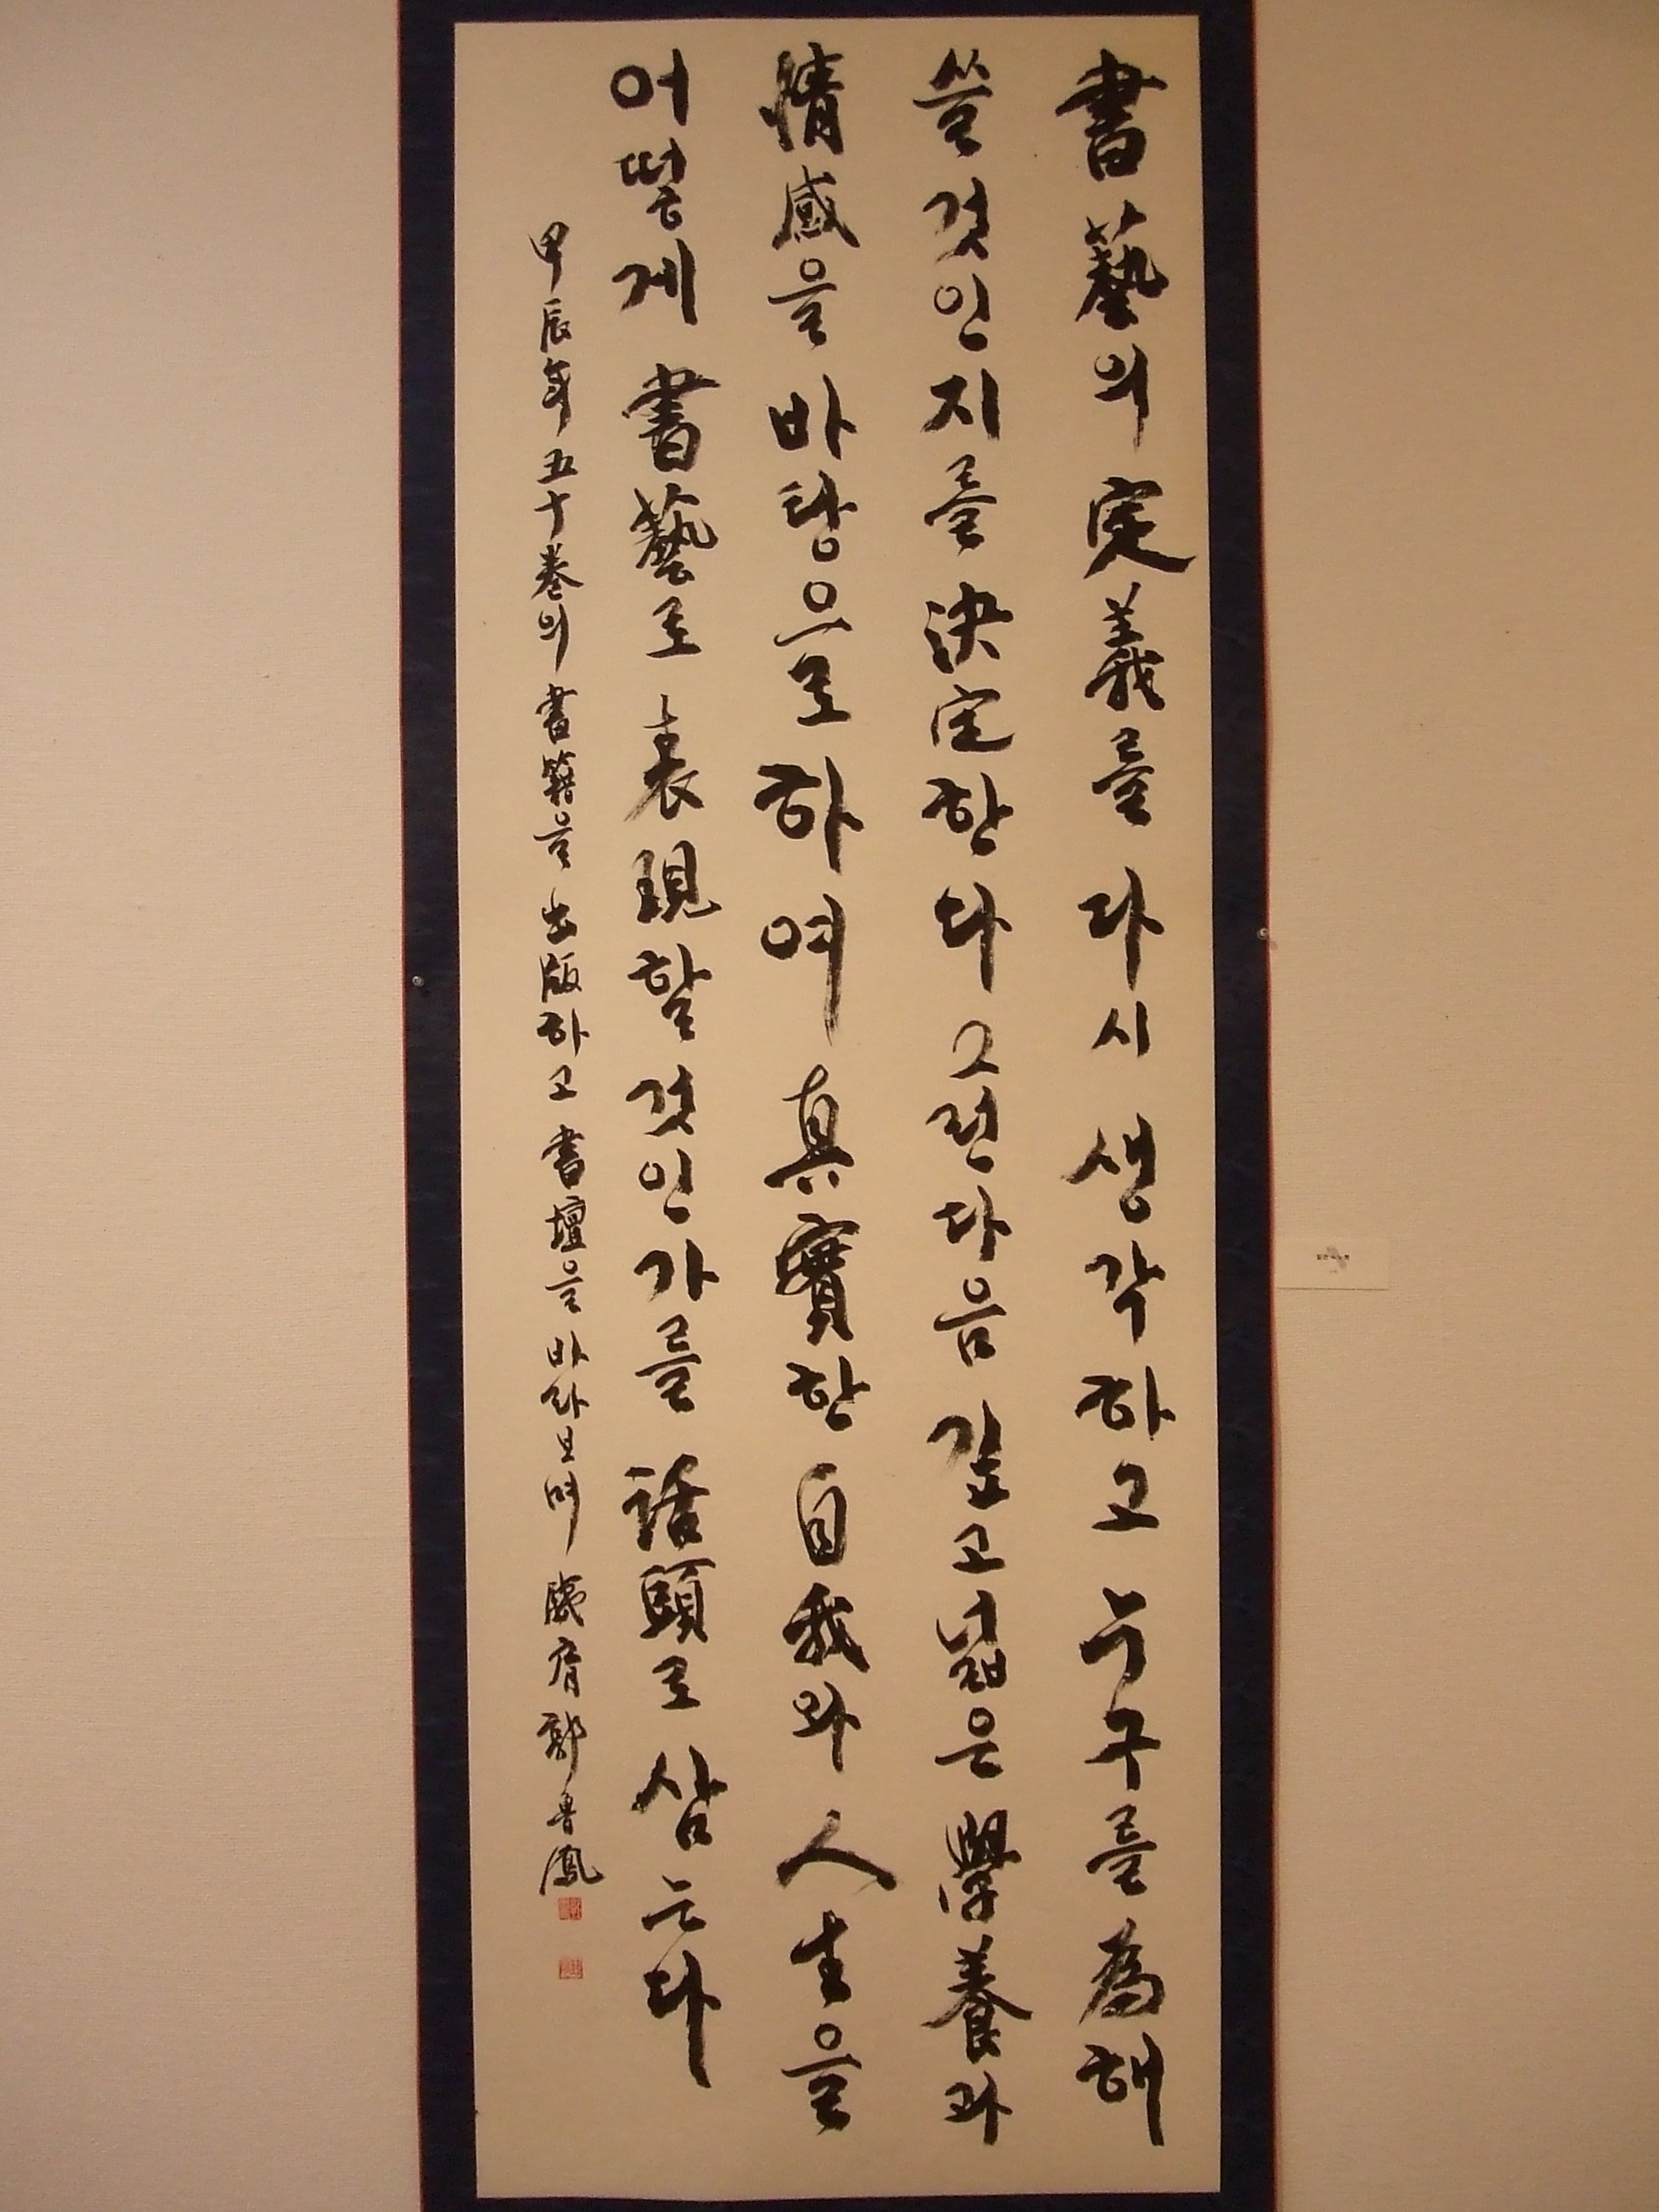 書藝의 定義를 다시 생각하고 누구를 爲해
쓸것인지를 決定한다 그런다음 깊고넓은 學養과
情感을 바탕으로하여 眞實한 自我와 人生을
어떻게 書藝로 表現할것인가를 話頭로 삼는다
甲辰年 五十卷의 書籍을 出版하고 書壇을 바라보며 郭魯鳳